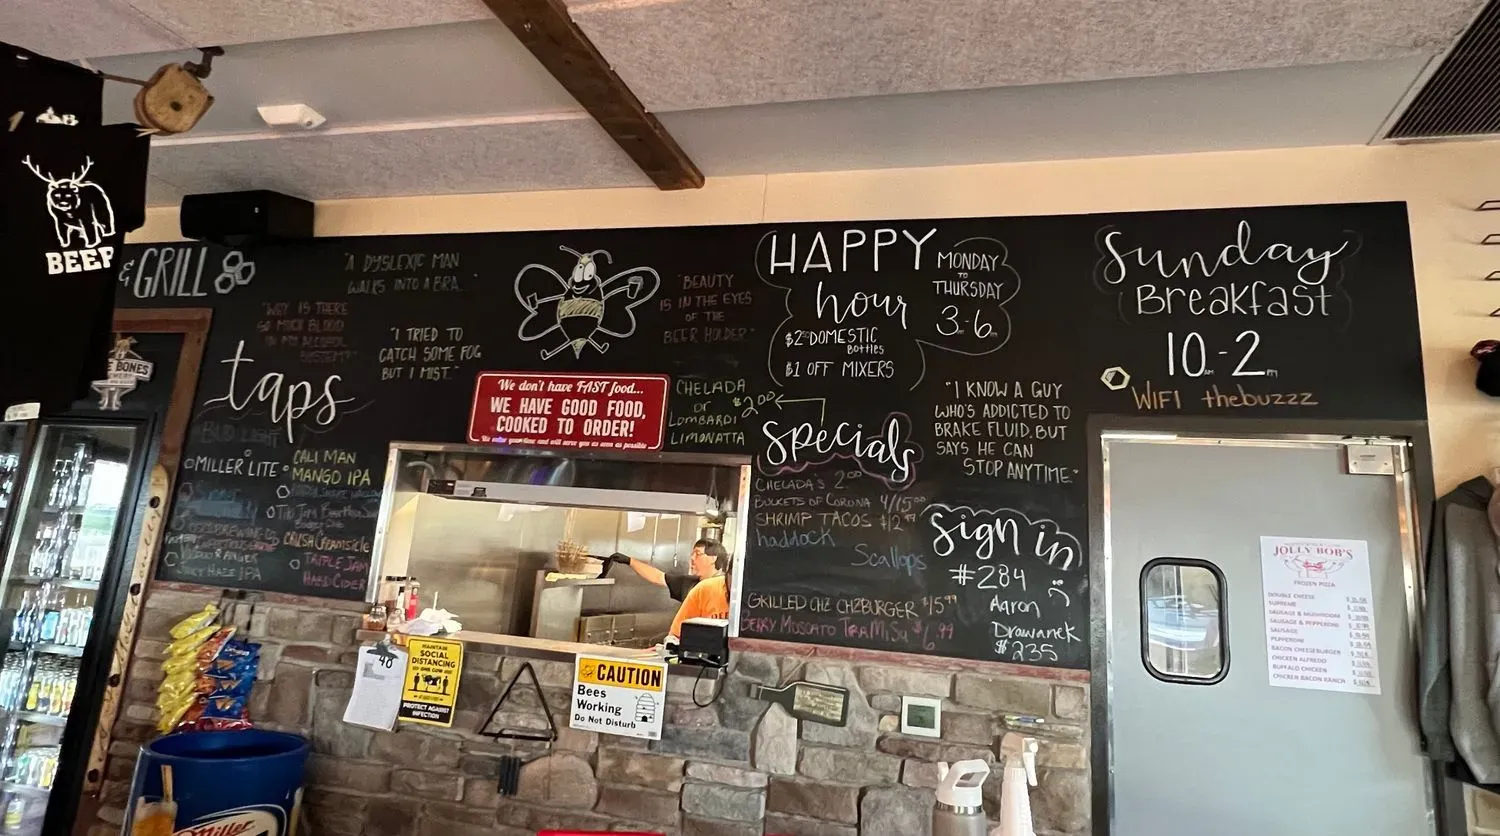 BEER
& GRILL
"A DYSLEXIC MAN
WALKS INTO A BRA..."
"WHY IS THERE
SO MUCH BLOOD
IN MY ALCOHOL
SYSTEM?"
"I TRIED TO
CATCH SOME FOG
BUT I MIST."
"BEAUTY
IS IN THE EYES
OF THE
BEER HOLDER."
taps
BUD LIGHT
MILLER LITE
CALI MAN
MANGO IPA
CRUSH CREAMSICLE
TRIPLE JAM
HARD CIDER
VOODOO RANGER
JUICY HAZE IPA
We don't have FAST food...
WE HAVE GOOD FOOD,
COOKED TO ORDER!
CHELADA
OR
LOMBARDI
LIMONATTA
$2.00
HAPPY
hour
MONDAY
TO
THURSDAY
3-6
$2 DOMESTIC
BOTTLES
$1 OFF MIXERS
specials
CHELADA'S 2.00
BUCKETS OF CORONA 4/15.00
SHRIMP TACOS $12.99
haddock
Scallops
GRILLED CHZ CHZBURGER $15.99
BERRY MOSCATO TIRAMISU $6.99
Sunday
Breakfast
10AM-2PM
WIFI thebuzzz
"I KNOW A GUY
WHO'S ADDICTED TO
BRAKE FLUID, BUT
SAYS HE CAN
STOP ANYTIME."
sign in
#284
Aaron
Drawanek
$235
48
MAINTAIN
SOCIAL
DISTANCING
PROTECT AGAINST
INFECTION
CAUTION
Bees
Working
Do Not Disturb
Miller
JOLLY BOB'S
FROZEN PIZZA
DOUBLE CHEESE
SUPREME
SAUSAGE & MUSHROOM
SAUSAGE & PEPPERONI
SAUSAGE
PEPPERONI
BACON CHEESEBURGER
CHICKEN ALFREDO
BUFFALO CHICKEN
CHICKEN BACON RANCH